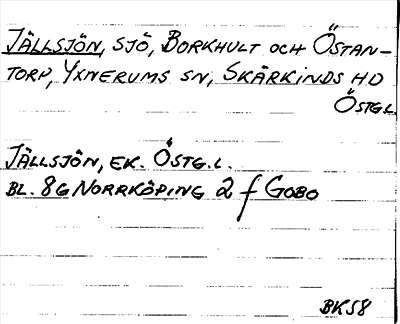 JÄLLSJÖN, SJÖ, BORKHULT OCH ÖSTAN-
TORP, YXNERUMS SN, SKÄRKINDS HD
ÖSTGL
JÄLLSJÖN, EK. ÖSTG.L.
BL. 8G NORRKÖPING 2 f GOBO
BK58